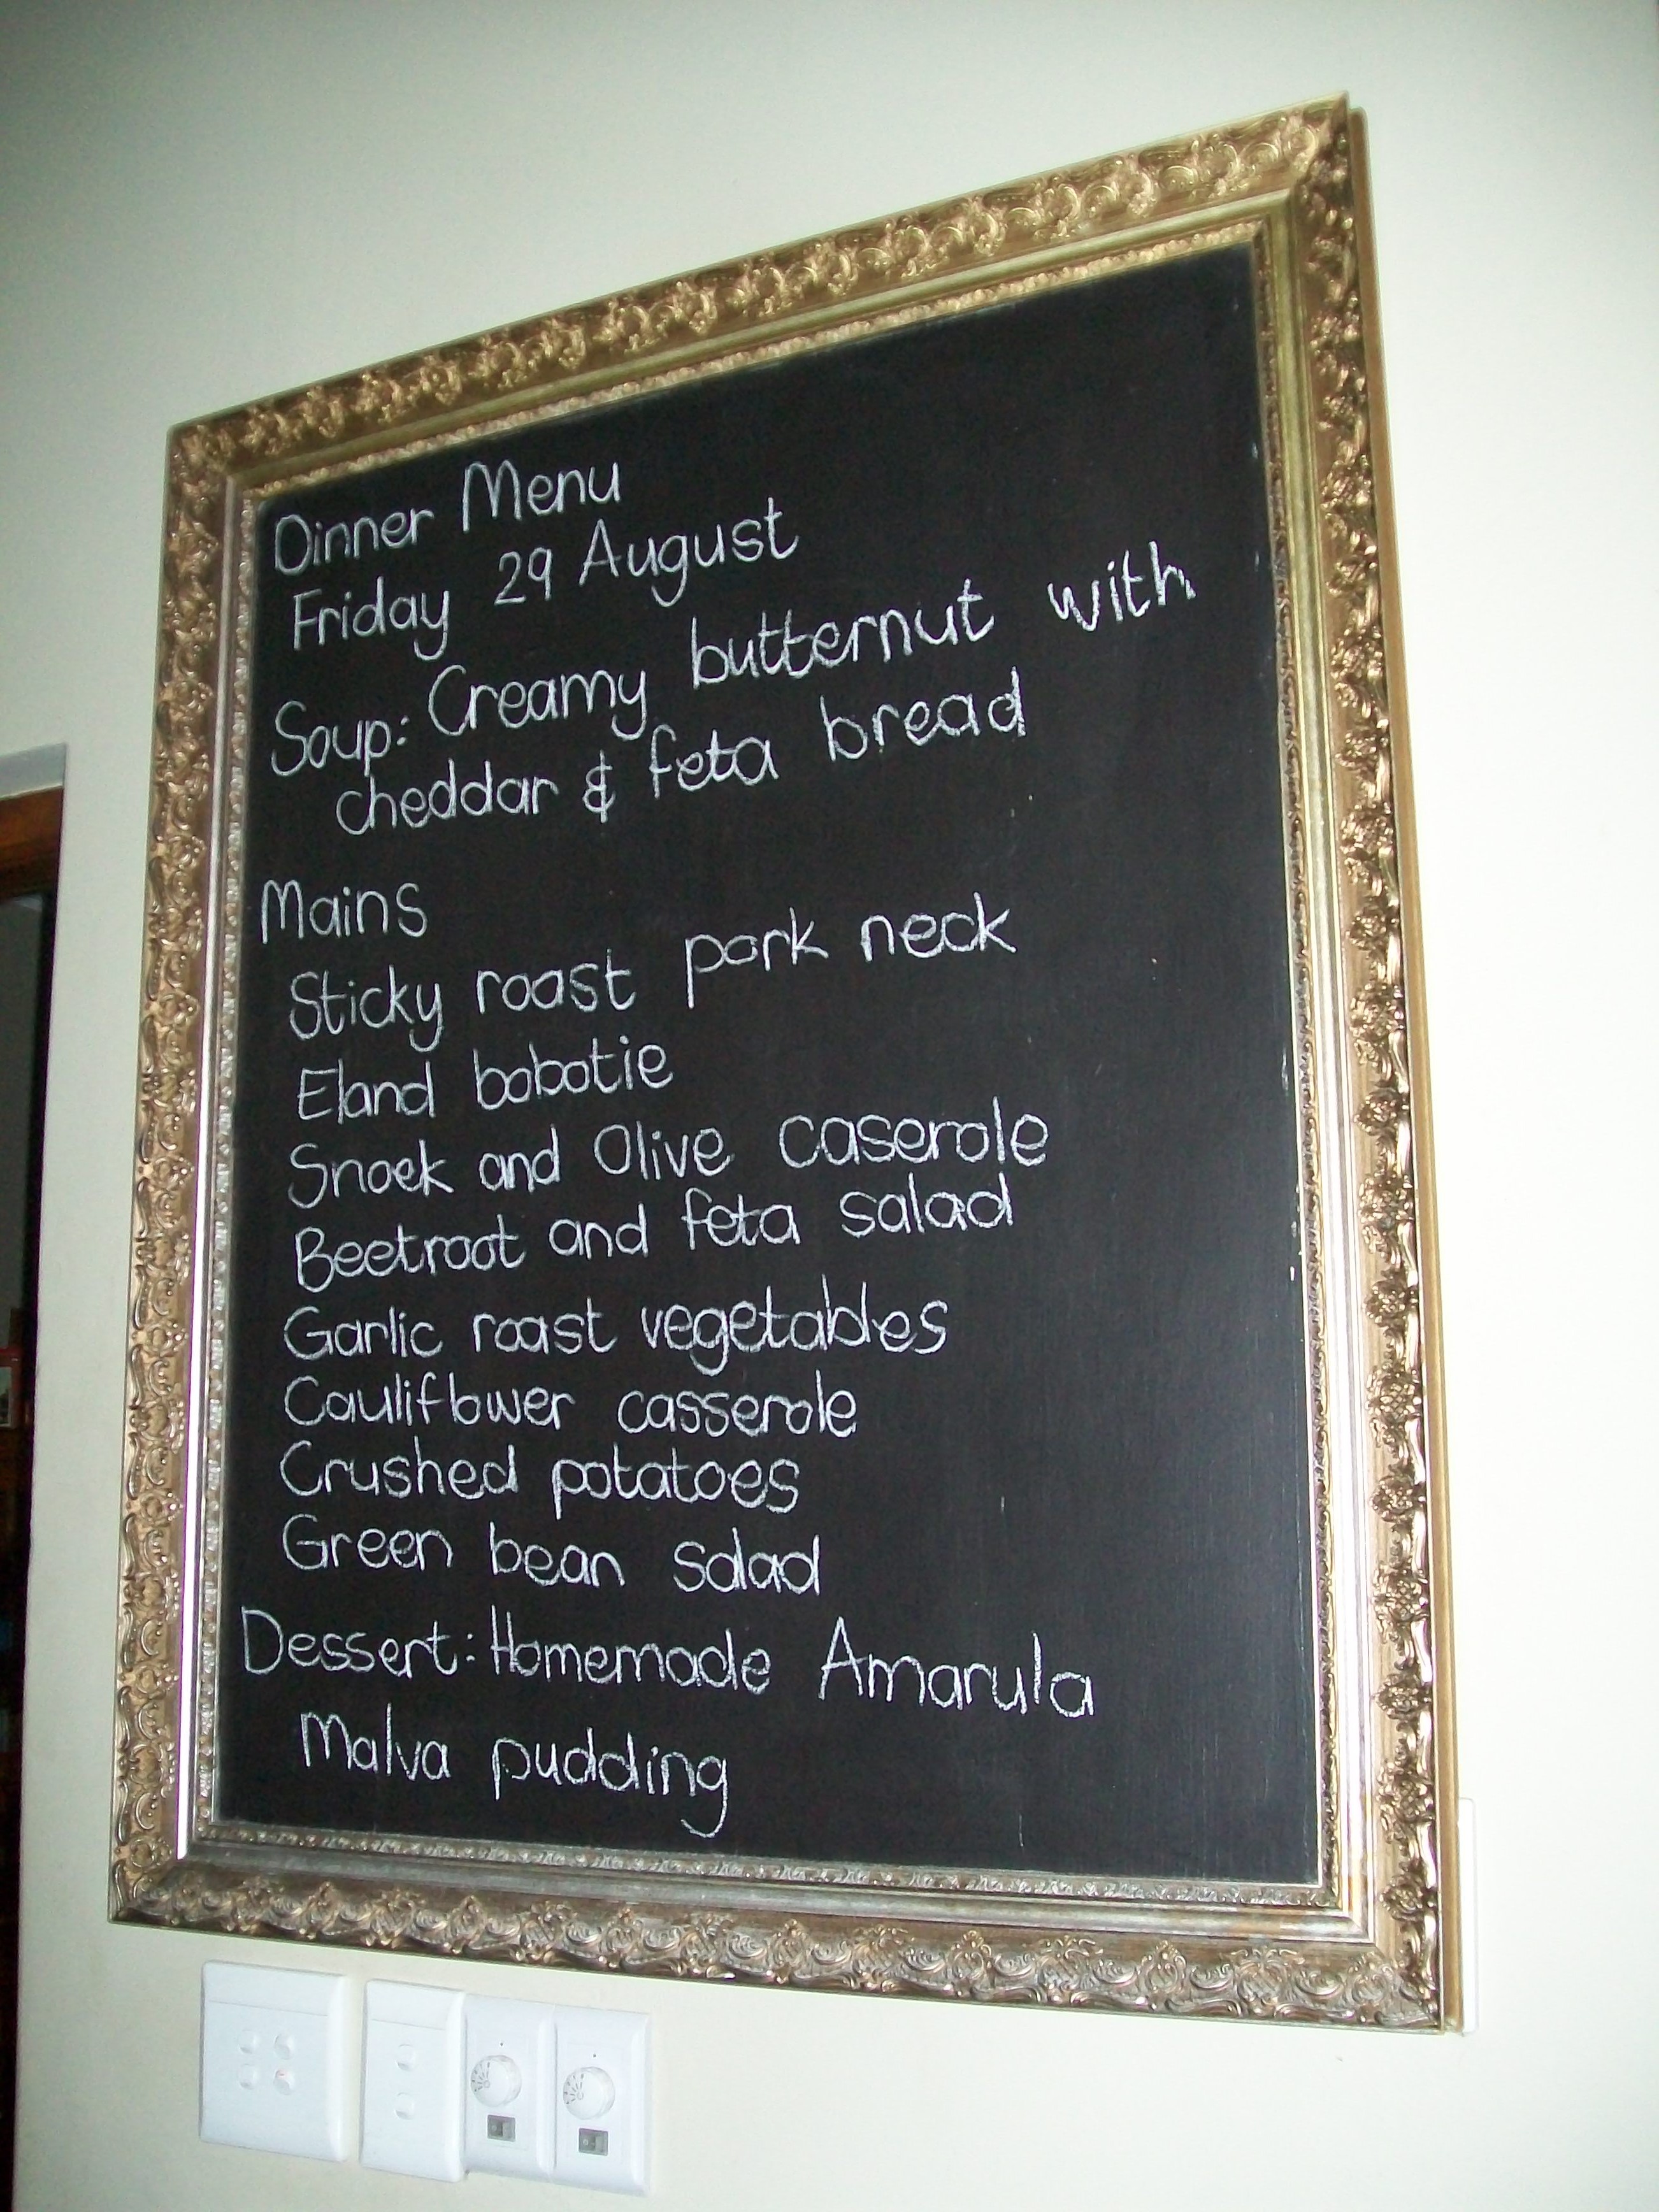 Dinner Menu
Friday 29 August
Soup: Creamy butternut with
cheddar & feta bread
Mains
Sticky roast pork neck
Eland bobotie
Snoek and Olive caserole
Beetroot and feta salad
Garlic roast vegetables
Cauliflower casserole
Crushed potatoes
Green bean salad
Dessert: Homemade Amarula
Malva pudding